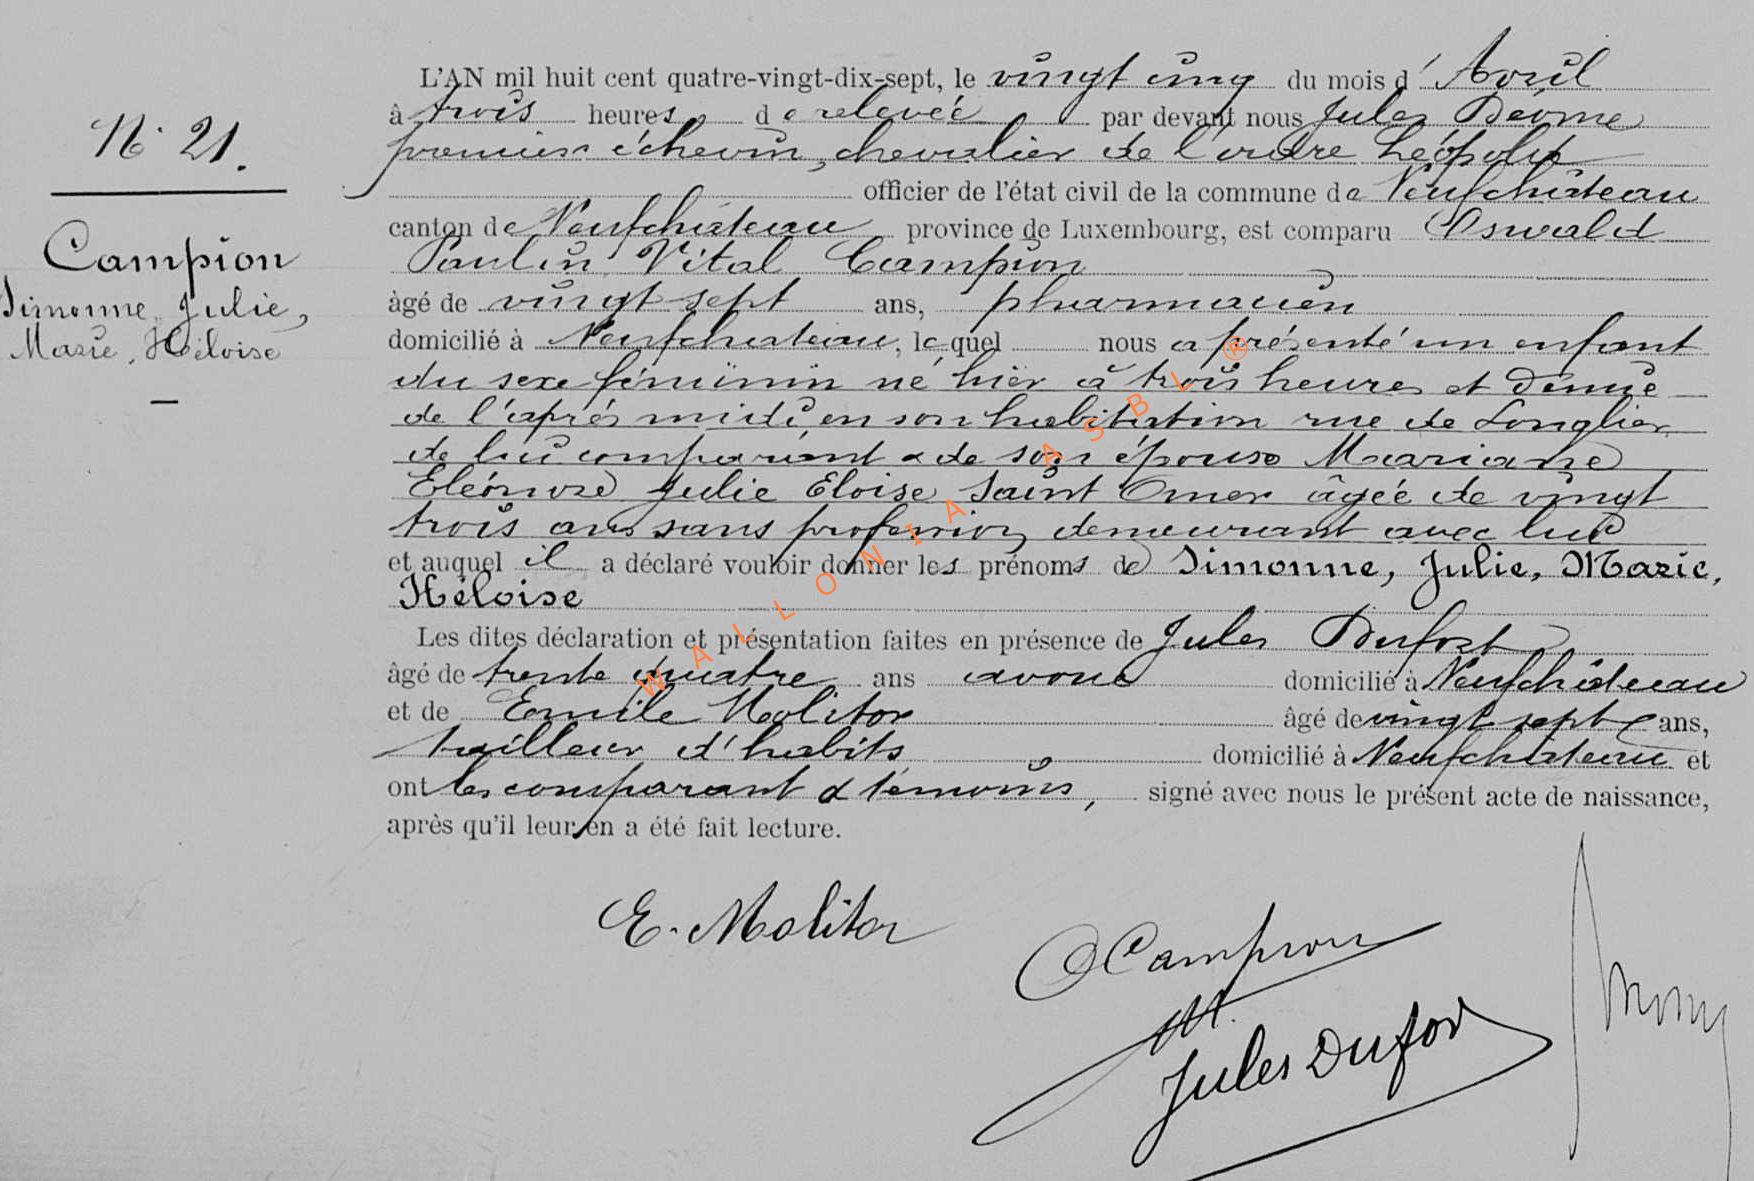 N° 21.
Campion
Simonne, Julie,
Marie, Héloise
L'AN mil huit cent quatre-vingt-dix-sept, le vingt cinq du mois d'Avril
à trois heures de relevée par devant nous Jules
premier échevin, chevalier de l'ordre Léopold
officier de l'état civil de la commune de Neufchâteau
canton de Neufchâteau province de Luxembourg, est comparu Oswald
Paulin Vital Campion
âgé de vingt sept ans, pharmacien
domicilié à Neufchateau, lequel nous a présenté un enfant
du sexe féminin né hier à trois heures et demie
de l'après midi en son habitation rue de Longlier
de lui comparant & de son épouse Mariane
Eléonore Julie Eloise Saint Omer âgée de vingt
trois ans sans profession, demeurant avec lui
et auquel il a déclaré vouloir donner les prénoms de Simonne, Julie, Marie,
Héloise
Les dites déclaration et présentation faites en présence de Jules Dufort
âgé de trente quatre ans avoué domicilié à Neufchâteau
et de Emile Molitor âgé de vingt sept ans,
tailleur d'habits domicilié à Neufchateau et
ont les comparant & témoins, signé avec nous le présent acte de naissance,
après qu'il leur en a été fait lecture.
E. Molitor
O Campion
Jules Dufor
WALLONIA ASBL ®